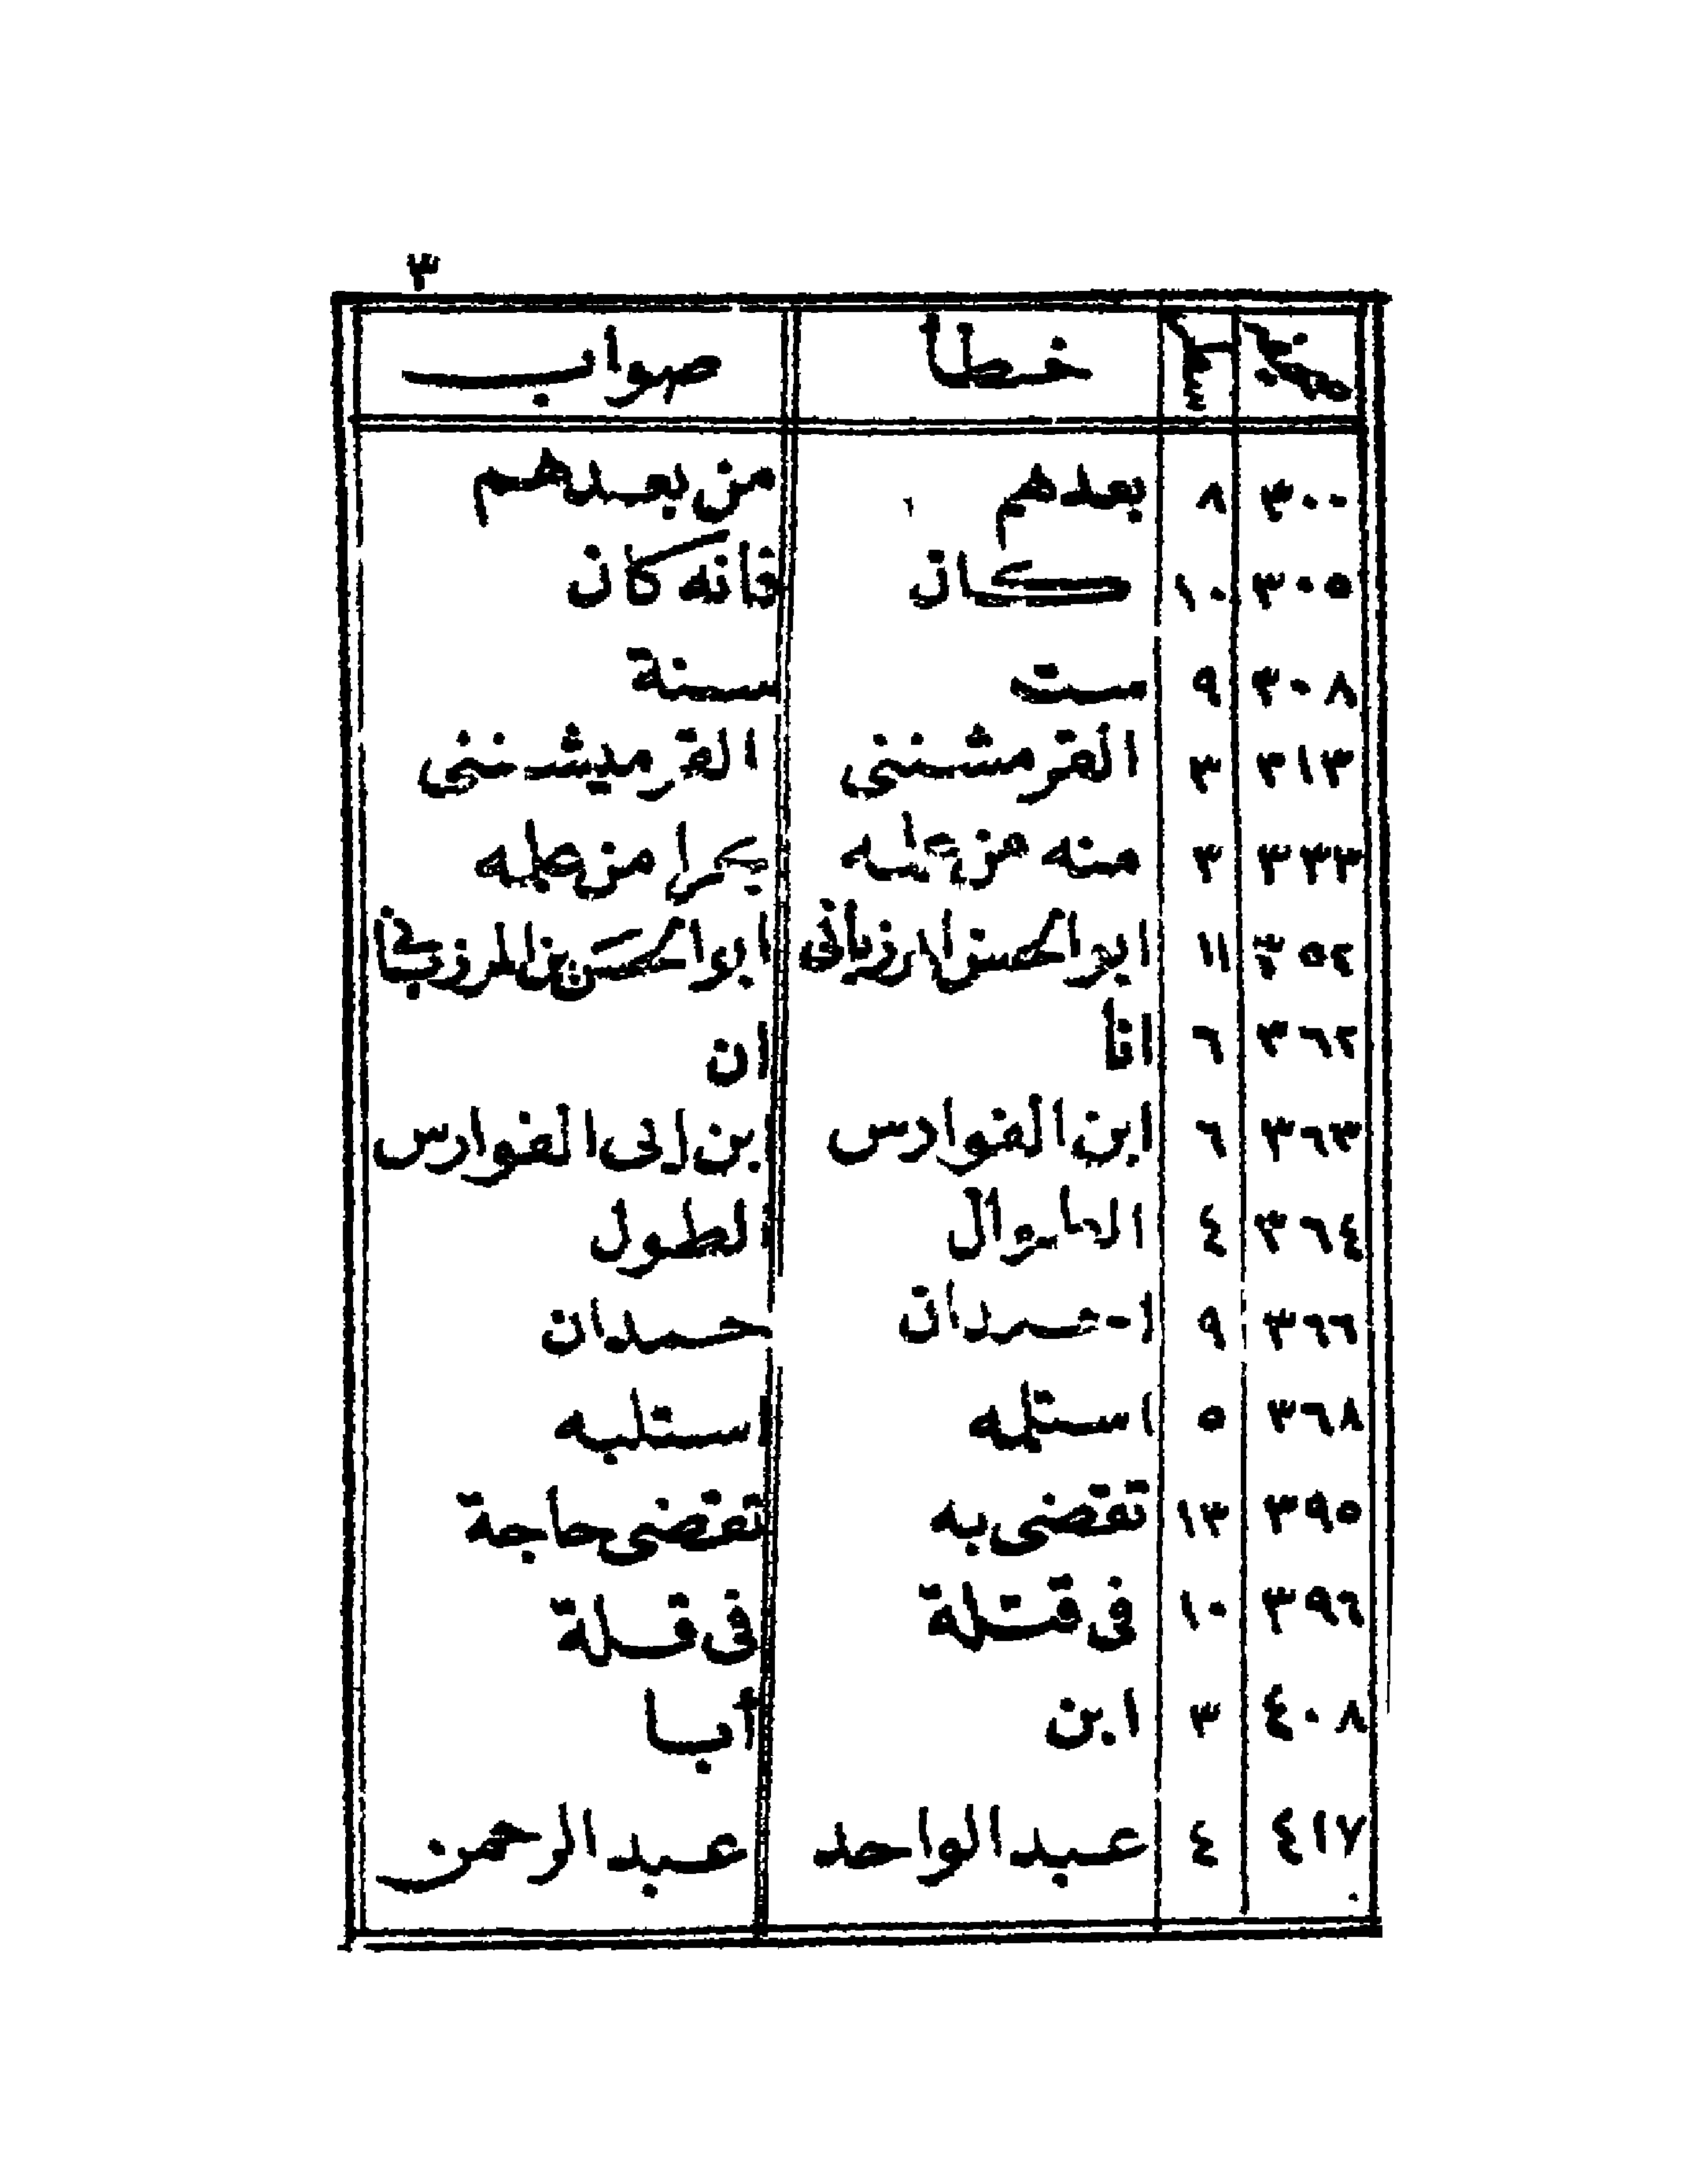 ٣
صفحة سطر خطأ صواب
٣٠٠ ٨ بعدهم من بعدهم
٣٠٥ ١٠ كان فانه كان
٣٠٨ ٩ ست سنة
٣١٣ ٣ القرمشنى القرميشنى
٣٣٣ ٣ منه من من عليه
٣٥٤ ١١ ابو الحسن المرزبانى ابو الحسن بن المرزبانى
٣٦٢ ٦ انا ان
٣٦٣ ٦ ابن الفوادس ابن ابى الفوارس
٣٦٤ ٤ الطول
٣٦٦ ٩ حمدان
٣٦٨ ٥ استلمه استلبه
٣٩٥ ١٣ تقضى به تقضى حاجة
٣٩٦ ١٠ فى قتلة فى قلة
٤٠٨ ٣ ابن أبا
٤١٧ ٤ عبد الواحد عبد الرحمن